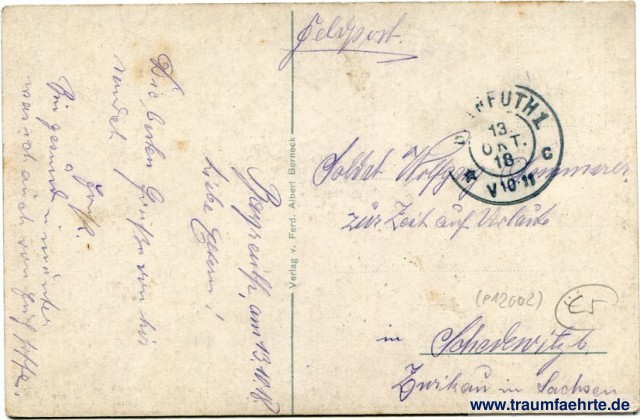 Feldpost.
BAYREUTH 1
13
OKT.
18
V 10-11
C
Soldat Wolfgang Sommerer
zur Zeit auf Urlaub
in
Schedewitz b.
Zwickau in Sachsen
(P12002)
€5
Verlag v. Ferd. Albert Berneck
Bayreuth, am 13.10.18
Liebe Eltern!
Die besten Grüße von hier
sendet
Bin gesund u. munter
was ich auch von Euch hoffe.
www.traumfaehrte.de